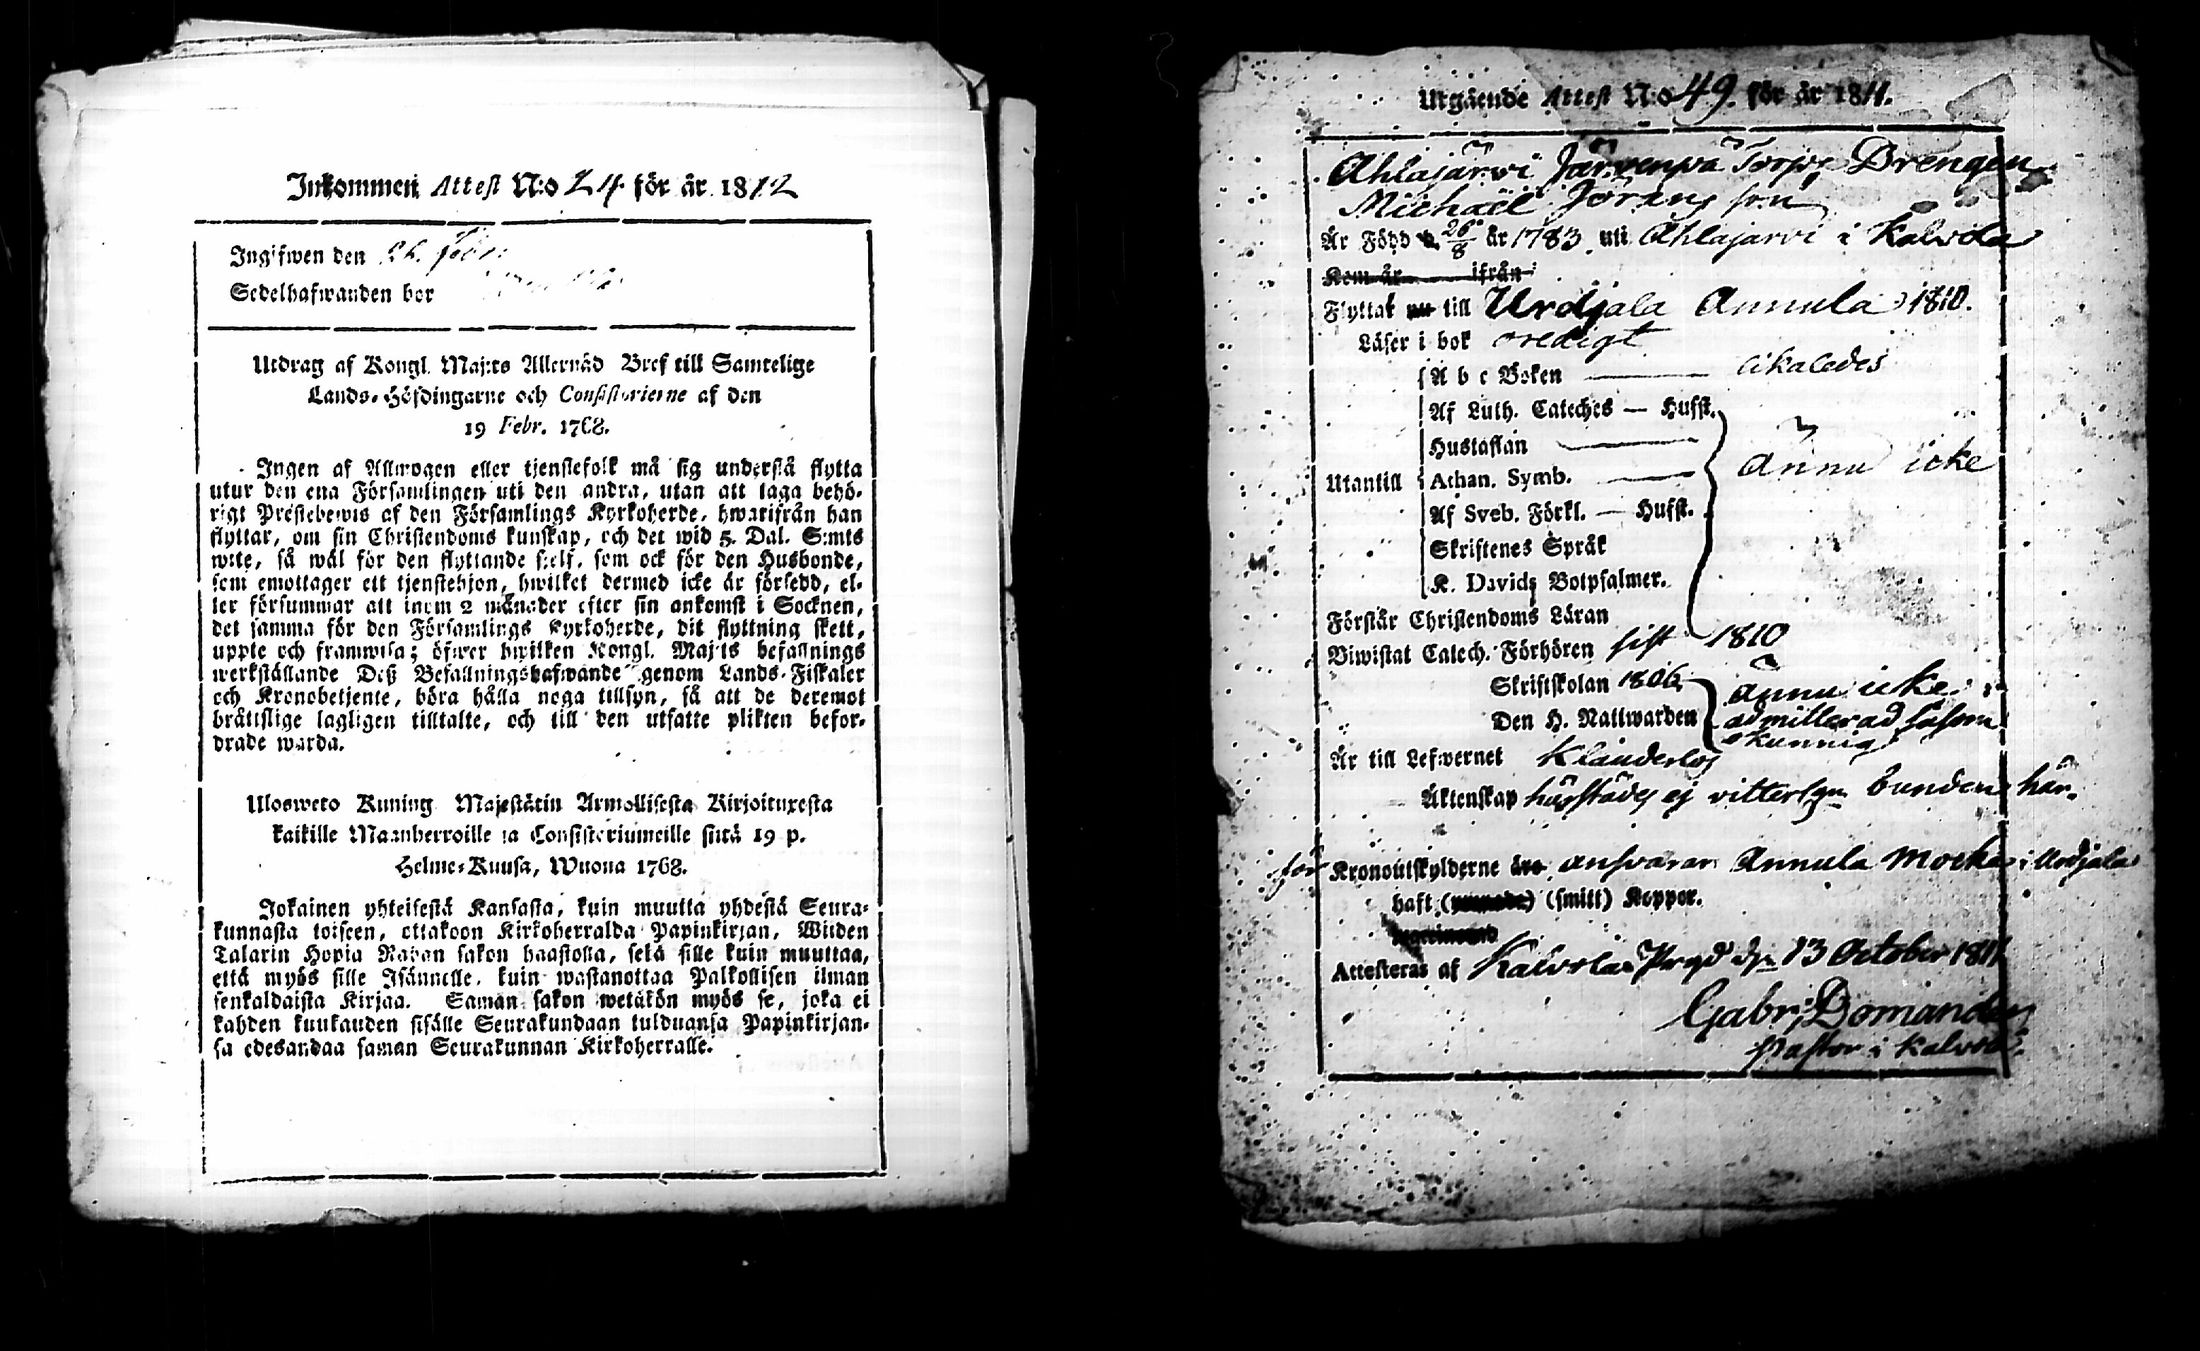 Inkommen Attest N:o 24 för år 1812
Ingifwen den 26. Febr.
Sedelhafwanden bor
Utdrag af Kongl. Maj:ts Allernåd Bref till Samtelige
Lands-Höfdingarne och Consistorierne af den
19 Febr. 1768.
Ingen af Allmogen eller tjenstefolk må sig understå flytta
utur den ena Församlingen uti den andra, utan att taga behö-
rigt Prestebewis af den Församlings Kyrkoherde, hwarifrån han
flyttar, om sin Christendoms kunskap, och det wid 5. Dal. S:mts
wite, så wäl för den flyttande sielf, som ock för den Husbonde,
som emottager ett tjenstehjon, hwilket dermed icke är försedd, el-
ler försummar att inom 2 månader efter sin ankomst i Socknen,
det samma för den Församlings Kyrkoherde, dit flyttning skett,
uppte och framwisa; öfwer hwilken Kongl. Maj:ts befallnings
werkställande Deß Befallningshafwande genom Lands-Fiskaler
och Kronobetjente, böra hålla noga tillsyn, så att de deremot
bråttslige lagligen tilltalte, och till den utsatte plikten befor-
drade warda.
Ulosweto Kuning Majestätin Armollisesta Kirjoituxesta
kaikille Maanherroille ja Consistoriumeille siitä 19 p.
Helme-Kuusa, Wuona 1768.
Jokainen yhteisestä Kansasta, kuin muutta yhdestä Seura-
kunnasta toiseen, ottakoon Kirkoherralda Papinkirjan, Wiiden
Talarin Hopia Rahan sakon haastolla, sekä sille kuin muuttaa,
että myös sille Isännelle, kuin wastanottaa Palkollisen ilman
senkaldaista Kirjaa. Saman sakon wetäkön myös se, joka ei
kahden kuukauden sisälle Seurakundaan tulduansa Papinkirjan-
sa edesandaa saman Seurakunnan Kirkoherralle.
Utgående Attest N:o 49. för år 1811.
Ahlajärwi Järvenpä Torps Drengen
Michaël Jörans son
Är Född d. 26/8 år 1783 uti Ahlajärvi i Kalvola
Kom år ifrån
Flyttat nu till Urdjala Annula 1810.
Läser i bok oredigt
A b c Boken likaledes
Af Luth. Cateches — Hufst.
Hustaflan
Utantill Athan. Symb. ännu icke
Af Sveb. Förkl. — Hufst.
Skriftenes Språk
K. Davids Botpsalmer.
Förstår Christendoms Läran
Biwistat Catech. Förhören sist 1810
Skriftskolan 1806 ännu icke
Den H. Nattwarden admitterad såsom
okunnig
Är till Lefwernet Klanderlös
Äktenskap härstädes ej vitterligen bunden här.
för Kronoutskylderne äro ansvarar Annula Mocka i Urdjala
haft (smitt) Koppor.
Attesteras af Kalvola Prgd den 13 October 1811
Gabr. Domander
Pastor i Kalvola.